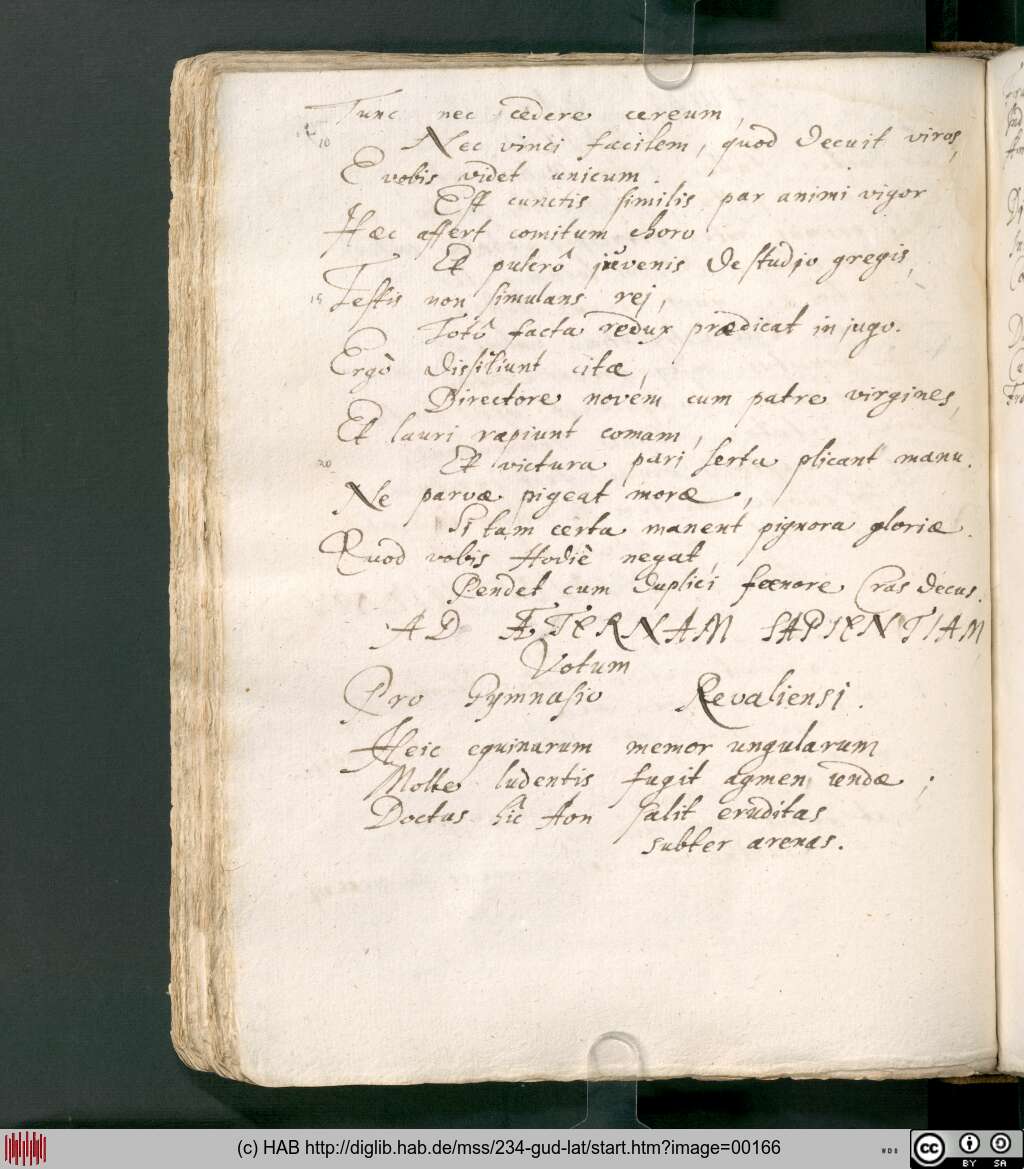 Tunc nec cedere cereum,
10 Nec vinci facilem, quod decuit viros,
E vobis videt unicum.
Est cunctis similis par animi vigor
Hæc affert comitum choro
Et pulcrô juvenis de studio gregis,
15 Testis non simulans rei,
Totô facta redux prædicat in jugo.
Ergò dissiliunt citæ,
Directore novem cum patre virgines,
Et lauri rapiunt comam,
20 Et victura pari serta plicant manu.
Ne parvæ pigeat moræ,
Si tam certa manent pignora gloriæ.
Quod vobis Hodiè negat,
Pendet cum duplici fœnore Cras decus.
AD ÆTERNAM SAPIENTIAM
Votum
Pro Gymnasio Revaliensi.
Heic equinarum memor ungularum
Molle ludentis fugit agmen undæ;
Doctus hîc fon salit eruditas
subter arenas.
(c) HAB http://diglib.hab.de/mss/234-gud-lat/start.htm?image=00166
cc BY SA